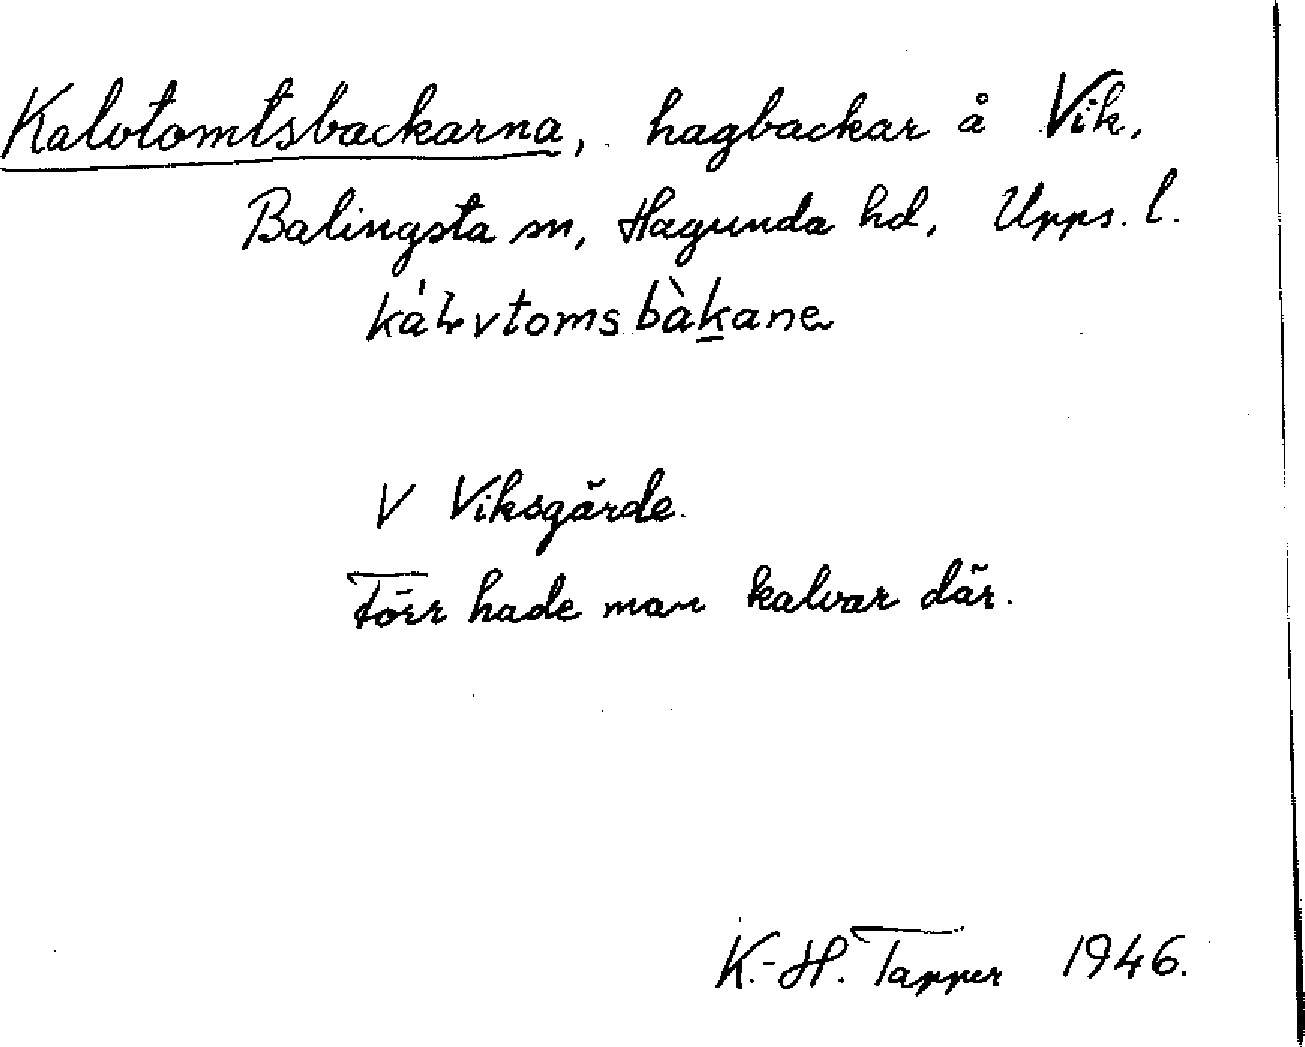 Kalvtomtsbackarna, hagbackar å Vik,
Balingsta sn, Hagunda hd, Upps. l.
ká̀ɫvtomsbàkane
V Viksgärde.
Förr hade man kalvar där.
K.-H. Tapper 1946.